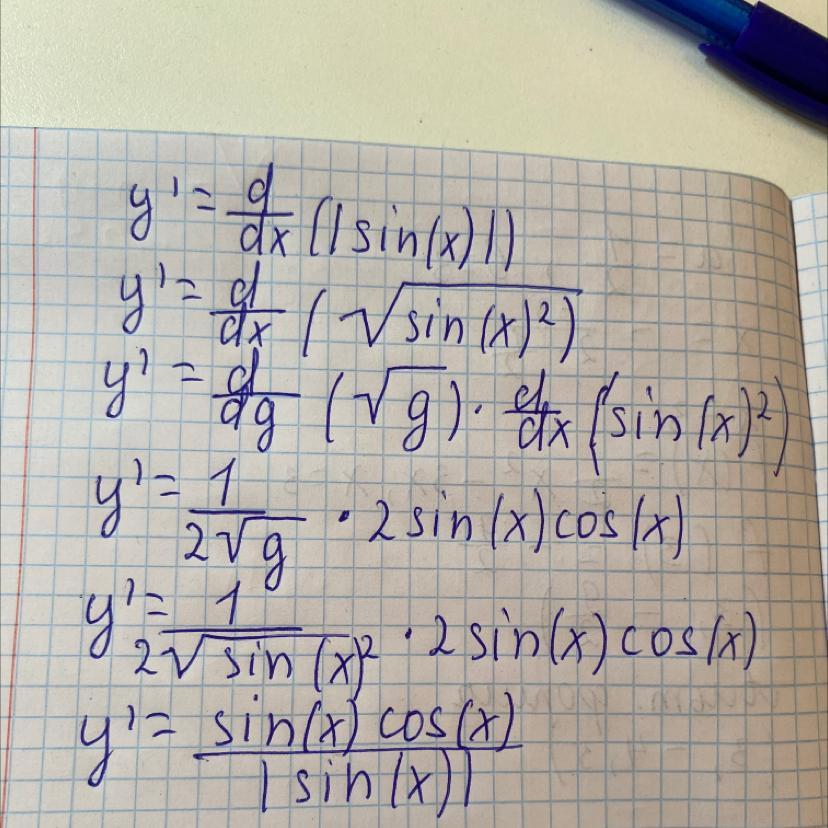 y' = d/dx (|sin(x)|)
y' = d/dx (√(sin(x)²))
y' = d/dg (√g) · d/dx (sin(x)²)
y' = 1/(2√g) · 2 sin(x) cos(x)
y' = 1/(2√(sin(x)²)) · 2 sin(x) cos(x)
y' = sin(x) cos(x)/|sin(x)|